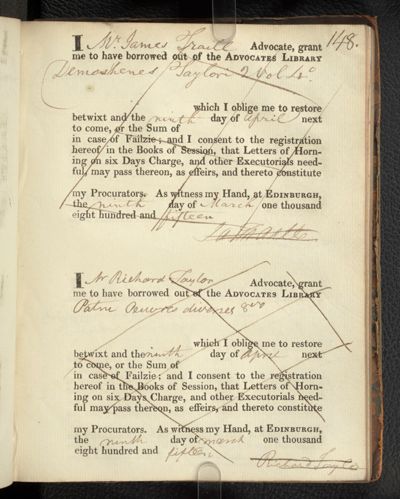 148.
I Mr. James Traill Advocate, grant
me to have borrowed out of the ADVOCATES LIBRARY
Demosthenes Taylori 2 Vol 4o
which I oblige me to restore
betwixt and the ninth day of April next
to come, or the Sum of
in case of Failzie; and I consent to the registration
hereof in the Books of Session, that Letters of Horn-
ing on six Days Charge, and other Executorials need-
ful, may pass thereon, as effeirs, and thereto constitute
my Procurators. As witness my Hand, at EDINBURGH,
the ninth day of March one thousand
eight hundred and fifteen
I Mr Richard Taylor Advocate, grant
me to have borrowed out of the ADVOCATES LIBRARY
Patru Oeuvres diverses 8vo
which I oblige me to restore
betwixt and the ninth day of April next
to come, or the Sum of
in case of Failzie; and I consent to the registration
hereof in the Books of Session, that Letters of Horn-
ing on six Days Charge, and other Executorials need-
ful may pass thereon, as effeirs, and thereto constitute
my Procurators. As witness my Hand, at EDINBURGH,
the ninth day of march one thousand
eight hundred and fifteen
Richard Taylor